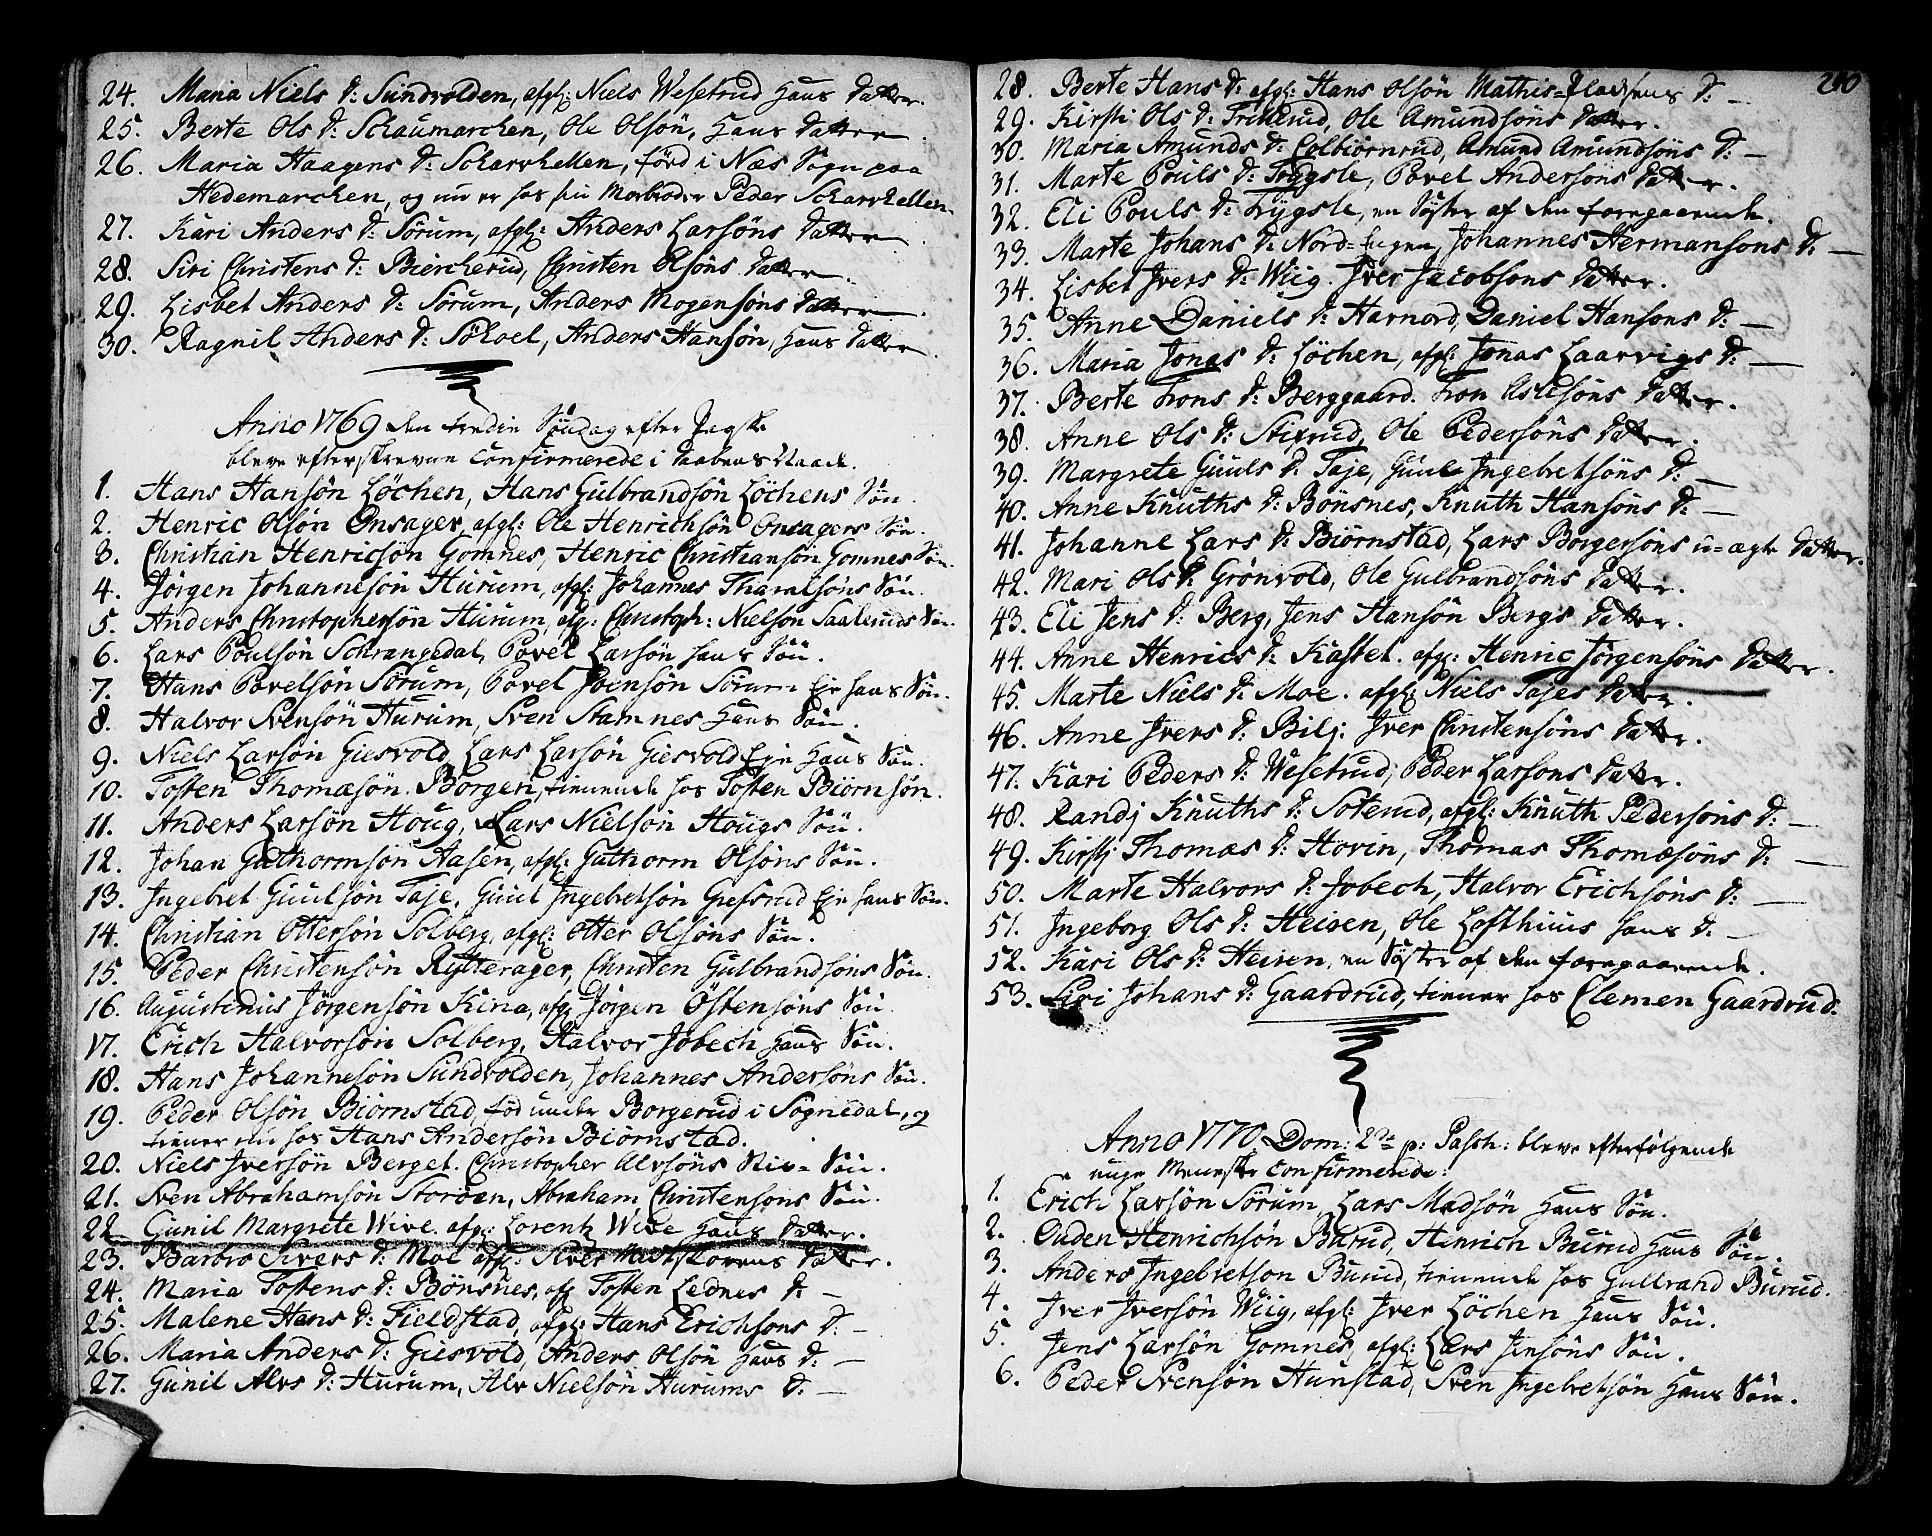 24. Maria Niels D: Sundvolden, afgl: Niels Wesetrud Hans Datter.
25. Berte Ols D: Schaumarchen, Ole Olsön, Hans Datter
26. Maria Haagens D: Scharvhellen, föd i Næs Sogn paa
Hedemarchen, og nu er hos sin Morbroder Peder Scharvhellen
27. Kari Anders D: Sörum, afgl: Anders Larsöns Datter
28. Siri Christens D: Biercherud, Christen Olsöns Datter
29. Lisbet Anders D: Sörum, Anders Mogensöns Datter
30. Ragnil Anders D: Sökoel, Anders Hansön, Hans Datter
Anno 1769 den tredie Söndag efter Paaske
bleve efterskrevne Confirmerede i Daabens Naade.
1. Hans Hansön Löchen, Hans Gulbrandsön Löchens Sön
2. Henric Olsön Onsager, afgl: Ole Henrichsön Onsagers Sön.
3. Christian Henricsön Gomnes, Henric Christiansön Gomnes Sön.
4. Jörgen Johannesön Hurum, afgl: Johannes Tharalsöns Sön.
5. Anders Christophersön Hurum, afg: Christoph: Nielsön Saaleruds Sön.
6. Lars Poulsön Schrangedal, Povel Larsön hans Sön.
7. Hans Povelsön Sörum, Povel Joensön Sörum Eje hans Sön.
8. Halvor Svensön Hurum, Sven Stamnes Hans Sön.
9. Niels Larsön Giesvold, Lars Larsön Giesvold Eje Hans Sön.
10. Tosten Thomæsön Borgen, tienende hos Tosten Biörnsön.
11. Anders Larsön Houg, Lars Nielsön Hougs Sön.
12. Johan Guthormsön Aasen, afgl: Guthorm Olsöns Sön.
13. Ingebret Guulsön Taje, Guul Ingebretsön Gresrud Eje hans Sön.
14. Christian Ottersön Solberg, afgl: Otter Olsöns Sön.
15. Peder Christensön Rytterager, Christen Gulbrandsöns Sön.
16. Augustinus Jörgensön Kina, afg Jörgen Östensöns Sön
17. Erich Halvorsön Solberg, Halvor Jobech Hans Sön.
18. Hans Johannesön Sundvolden, Johannes Andersöns Sön.
19. Peder Olsön Biörnstad, föd under Borgerud i Sognedal, og
tiener nu hos Hans Andersön Biörnstad.
20. Niels Iversön Berget. Christopher Alvsöns Stiv= Sön.
21. Sven Abrahamsön Storöen, Abraham Christensons Sön.
22 Gunil Margrete Wive. afg: Lorentz Wive Hans Datter.
23. Barbro Sivers D: Moe afgl: Siver Datter.
24. Maria Tostens D: Bönsnes, afg Tosten Lednes D: —
25. Malene Hans D: Fieldstad, afgl: Hans Erichsons D: —
26. Maria Anders D: Giesvold, Anders Olsön Hans D: —
27. Gunil Alvs D: Hurum, Alv Nielsön Hurums D: —
240
28. Berte Hans D: afgl: Hans Olsön Mathis=Pladsens D: —
29. Kirsti Ols D: Ole Amundsöns Datter.
30. Maria Amunds D: Colbiörnrud, Amund Amundsöns D: —
31. Marte Pouls D: Tryggsle, Povel Andersons Datter.
32. Eli Pouls D: Trygsle, en Söster af den foregaaende.
33. Marte Johans D: Nord= Johannes Hermansons D: —
34. Lisbet Ivers D: Wiig. Iver Jacobsons Datter.
35. Anne Daniels D: Harnord, Daniel Hansons D: —
36. Maria Jonas D: Löchen, afgl: Jonas Laarvigs D: —
37. Berte Trons D: Berggaard. Tron Aslesöns Datter.
38. Anne Ols D: Stixrud, Ole Pedersöns Datter.
39. Margrete Guuls D: Taje, Guul Ingebretsöns D: —
40. Anne Knuths D: Bönsnes, Knuth Hansöns D: —
41. Johanne Lars D: Biörnstad, Lars Borgersöns u=ægte Datter.
42. Mari Ols D: Grönvold, Ole Gulbrandsöns Datter.
43. Eli Jens D: Berg, Jens Hansön Bergs Datter.
44. Anne Henrics D: Kastet. afgl: Henric Jörgensöns Datter.
45. Marte Niels D: Moe. afgl: Niels Tajes Datter.
46. Anne Ivers D: Bilj: Iver Christensöns Datter.
47. Kari Peders D: Wesetrud, Peder Larsons Datter.
48. Randj Knuths D: Soterud, afgl: Knuth Pedersöns D: —
49. Kirstj Thomas D: Hovin, Thomas Thomæsöns D: —
50. Marte Halvors D: Jobech, Halvor Erichsöns D: —
51. Ingeborg Ols D: Heieren, Ole Lofthuus hans D: —
52. Kari Ols D: Heieren, en Söster af den foregaaende.
53. Siri Johans D: Gaardrud, tiener hos Clemen Gaardrud.
Anno 1770 Dom: 2da p: Pasch: bleve efterfölgende
unge Mennesker Confirmerede:
1. Erich Larsön Sörum, Lars Madsön Hans Sön.
2. Ouden Henrichsön Burud, Henrich Burud Hans Sön.
3. Anders Ingebretson Burud, tienende hos Gulbrand Burud.
4. Iver Iversön Wiig, afgl: Iver Löchen Hans Sön.
5. Jens Larsön Gomnes, afgl: Lars Jensöns Sön.
6. Peder Svensön Hunstad, Sven Ingebretsön Hans Sön.